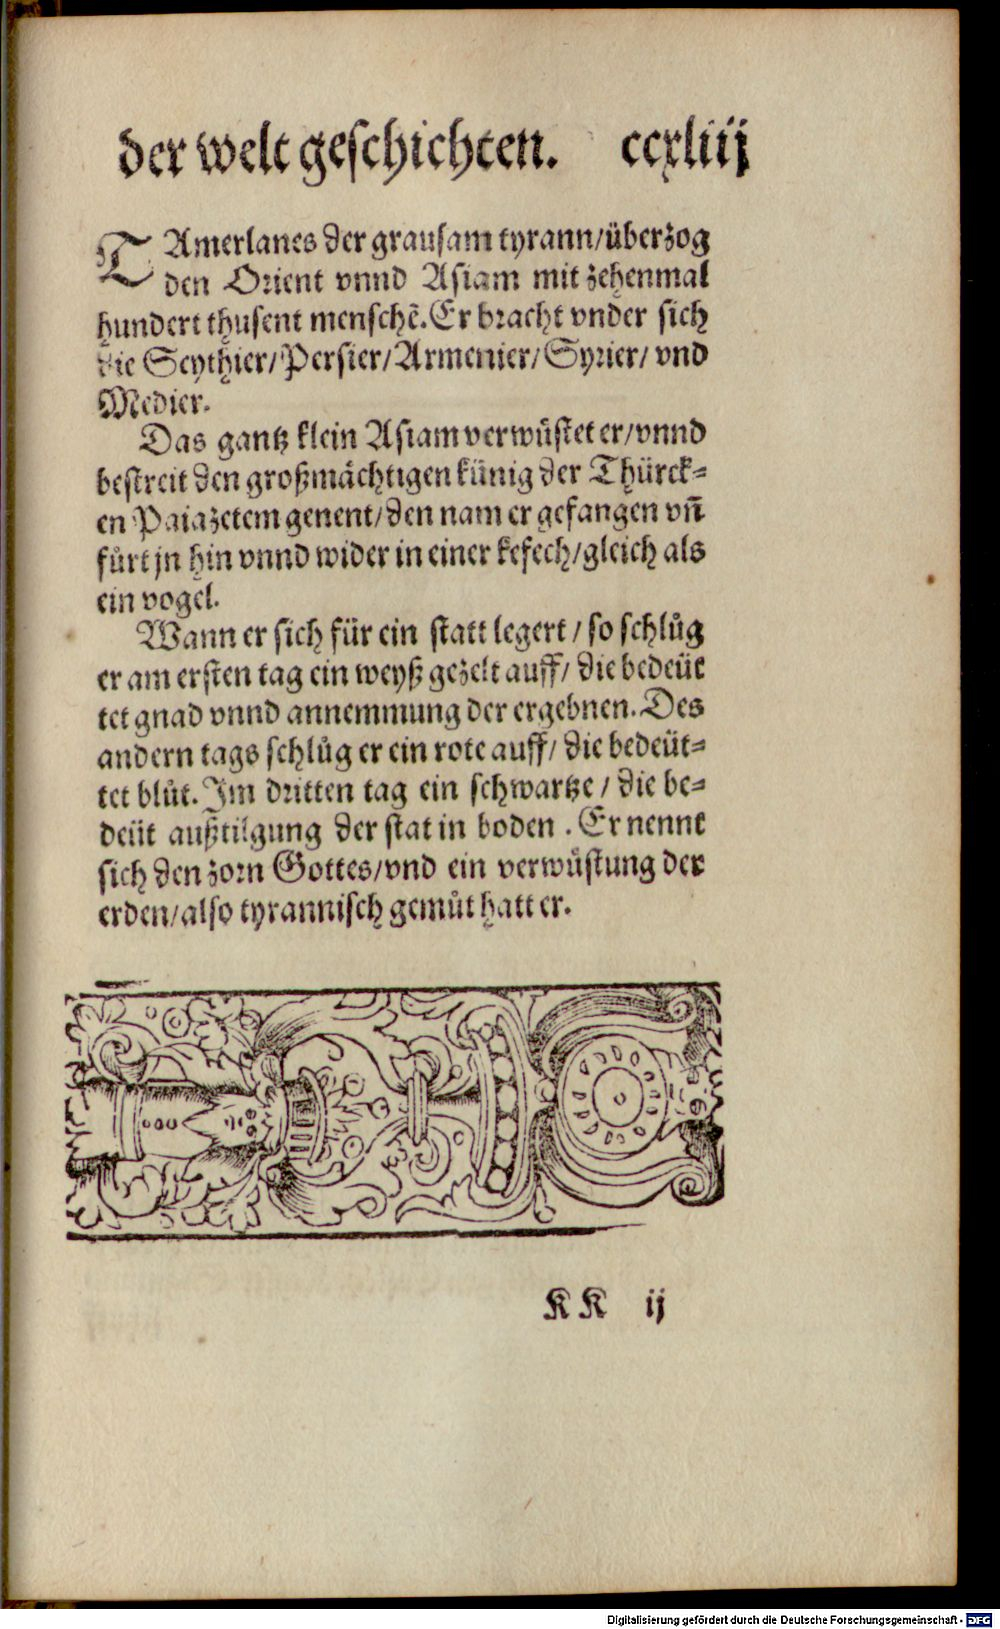 der welt geschichten. ccxliij
TAmerlanes der grausam tyrann/überzog
den Orient vnnd Asiam mit zehenmal
hundert thusent menschẽ. Er bracht vnder sich
die Scythier/Persier/Armenier/Syrier/vnd
Medier.
Das gantz klein Asiam verwüstet er/vnnd
bestreit den großmächtigen künig der Thürck=
en Paiazetem genent/den nam er gefangen vñ
fürt jn hin vnnd wider in einer kefech/gleich als
ein vogel.
Wann er sich für ein statt legert/so schlůg
er am ersten tag ein weyß gezelt auff/die bedeüt
tet gnad vnnd annemmung der ergebnen. Des
andern tags schlůg er ein rote auff/die bedeüt=
tet blůt. Im dritten tag ein schwartze/die be=
deüt außtilgung der stat in boden. Er nennt
sich den zorn Gottes/vnd ein verwüstung der
erden/also tyrannisch gemůt hatt er.
KK ij
Digitalisierung gefördert durch die Deutsche Forschungsgemeinschaft - DFG